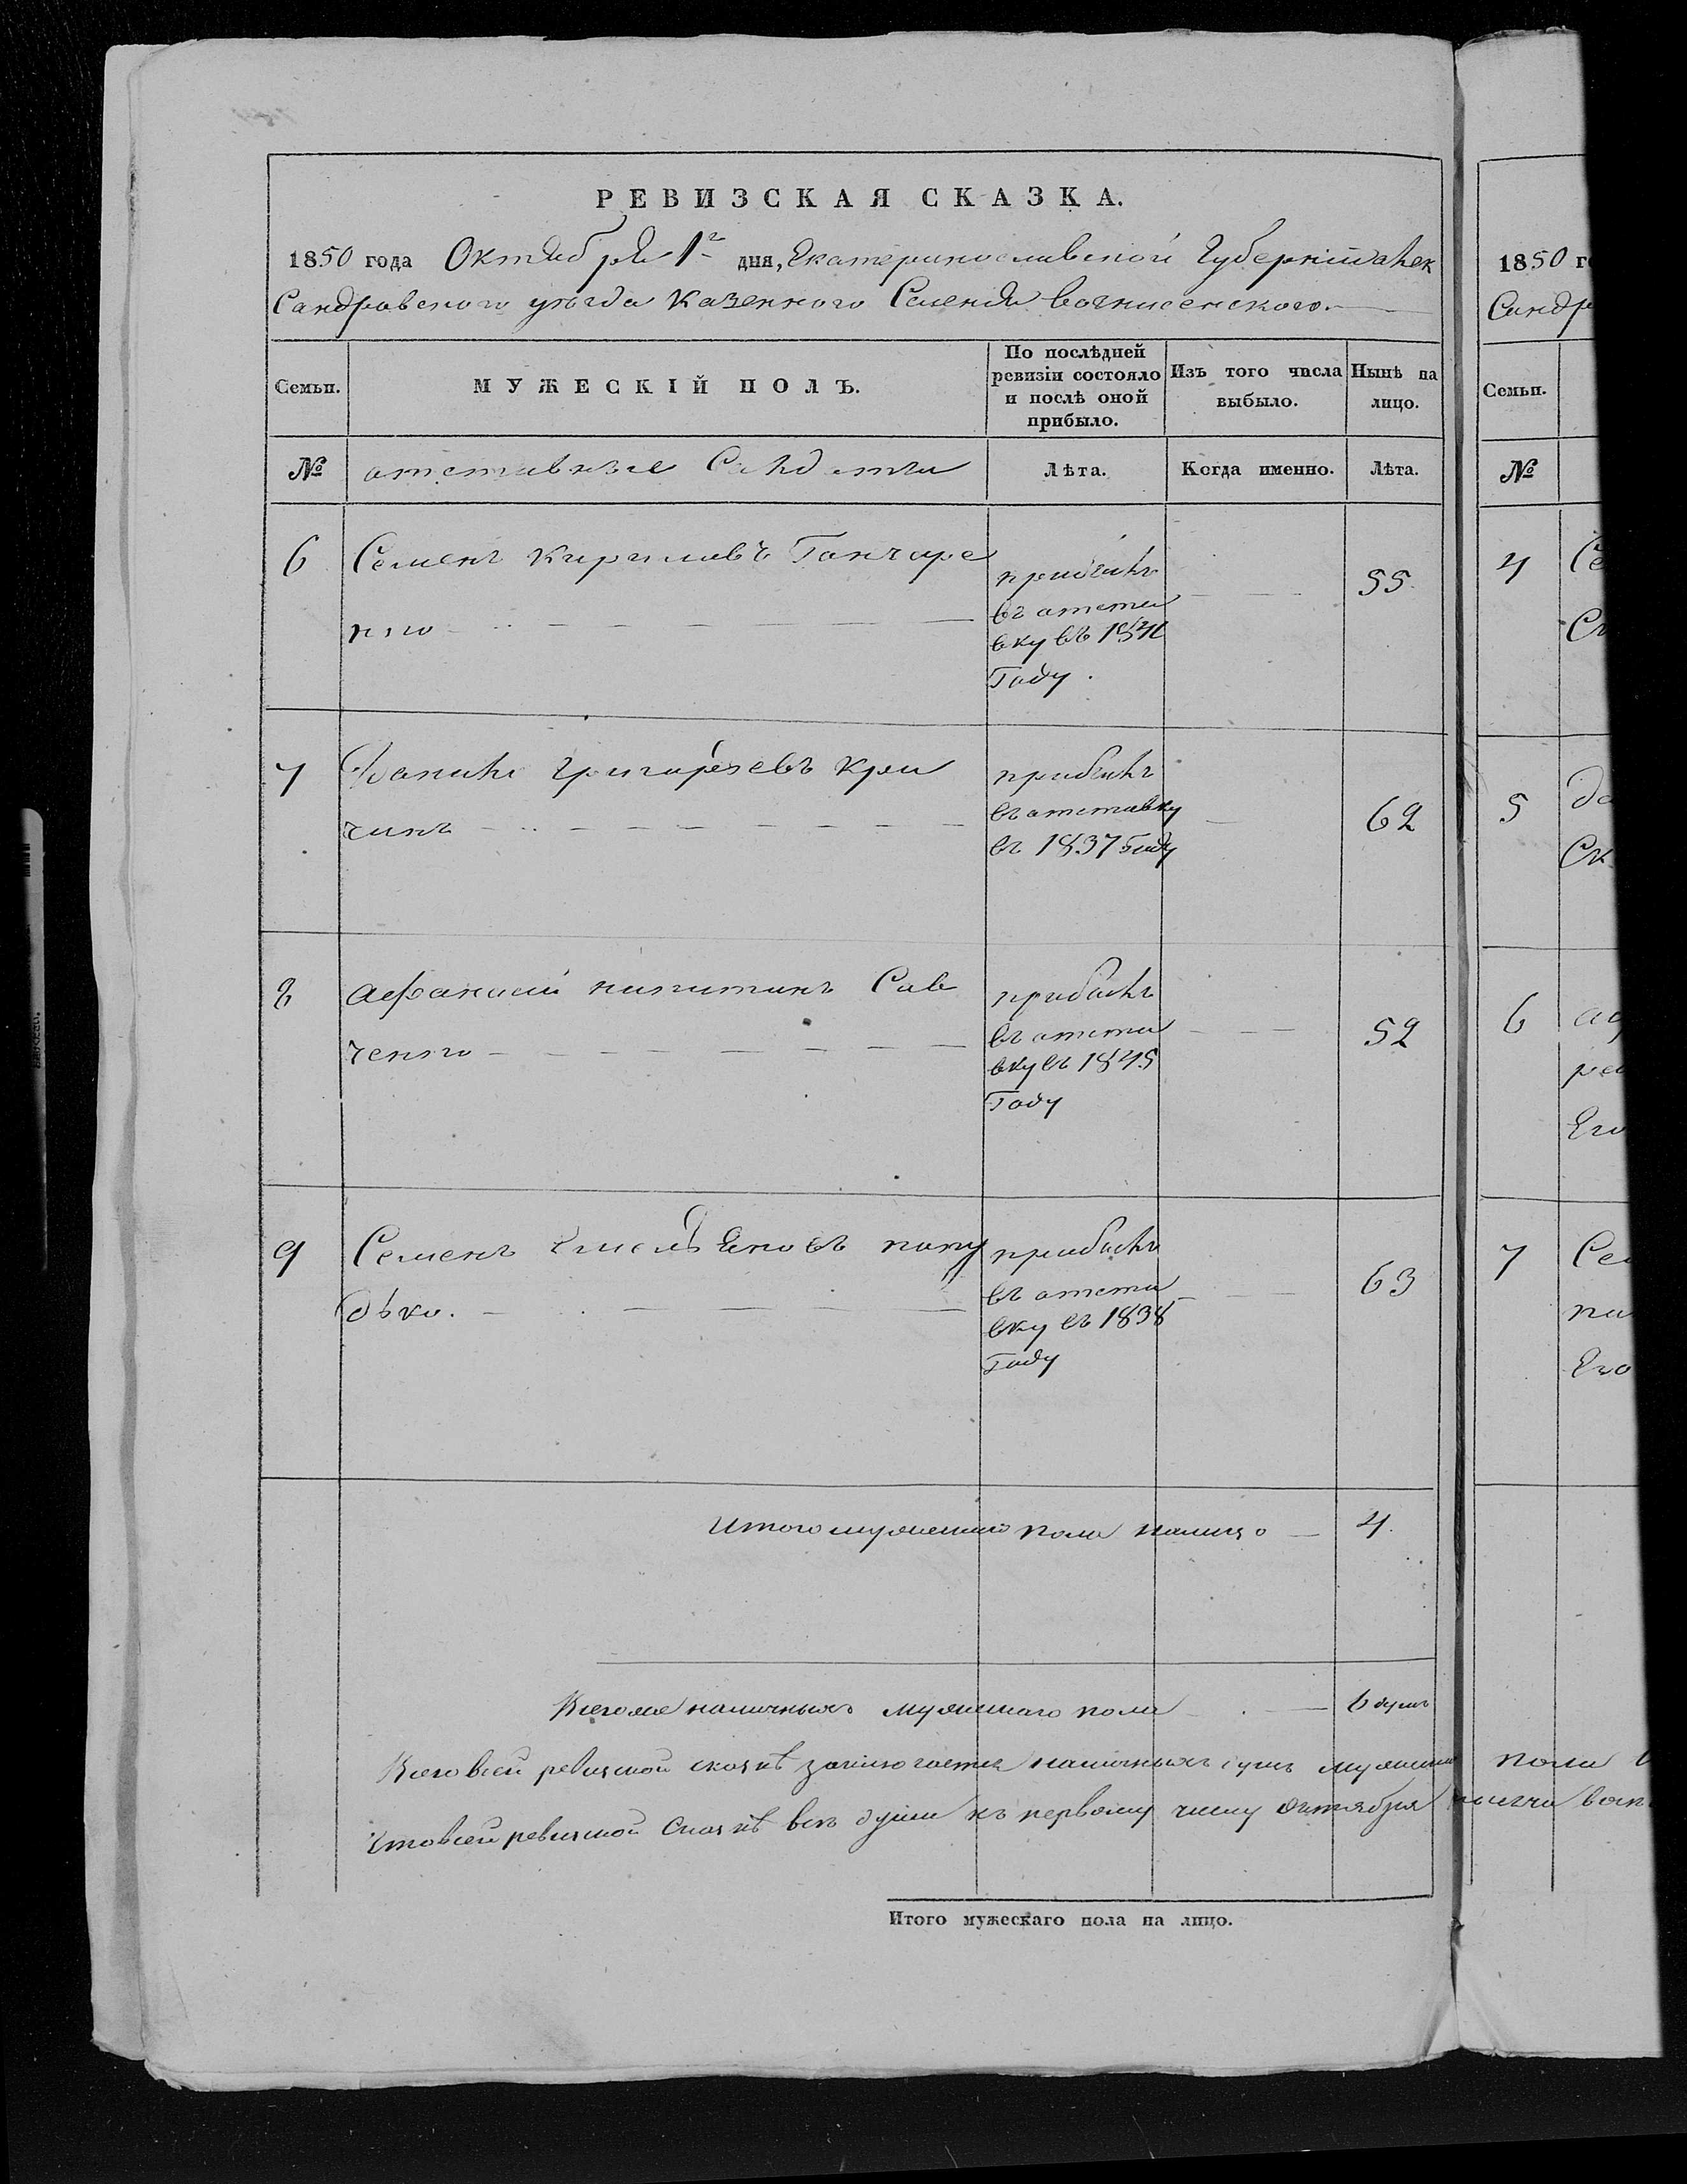 РЕВИЗСКАЯ СКАЗКА.
1850 года Октября 1го дня, Екатеринославской Губерніи алек
сандровского уѣзда казенного Селенія вознисенского.
Семьи.
МУЖЕСКІЙ ПОЛЪ.
По послѣдней
ревизіи состояло
и послѣ оной
прибыло.
Изъ того числа
выбыло.
Нынѣ на
лицо.
№
отставные Салдаты
Лѣта.
Когда именно.
Лѣта.
6 Семенъ Кириловъ Ганчаре
нко
прибылъ
въ отста
вку въ
Году.
55
7 Григорьевъ Кри
чинъ
прибылъ
въ отставку
въ 1837 Году
62
8 афанасий никитинъ Сав
ченко
прибылъ
въ отста
вку въ 1845
Году
52
9 Семенъ Емельяновъ
дько.
прибылъ
въ отста
вку въ 1838
Году
63
Итого мужеского пола налицо 4.
Всего же наличныхъ мужескаго пола 6 душъ
Всего всей ревизской сказкѣ заключается наличныхъ душъ мужеска пола
Что всей ревизской Сказкѣ всѣ души къ первому числу октября тысяча
Итого мужескаго пола на лицо.
1850 го
Сандро
Семьи.
№
4 Се
5
Ск
6 аф
Его
7 Сем
Его